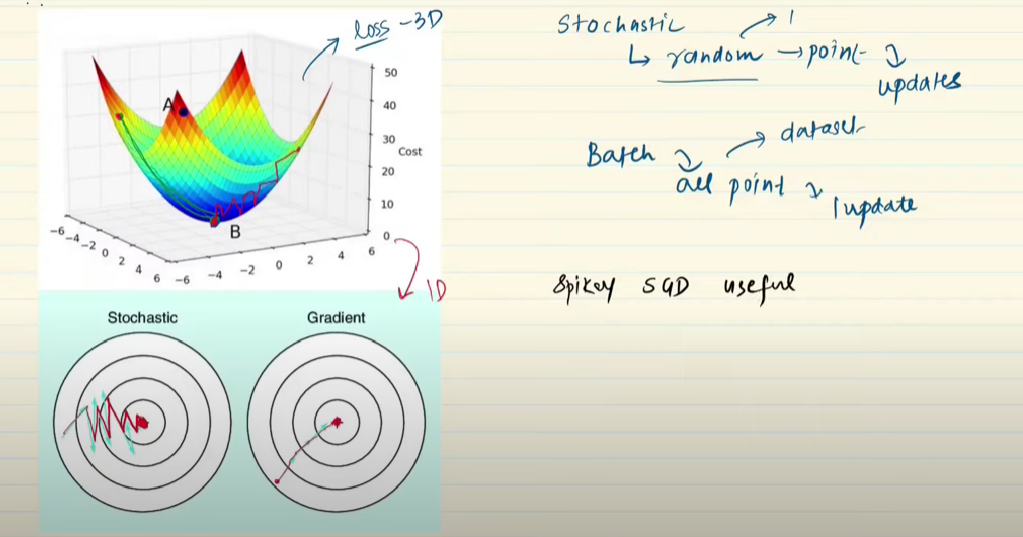 loss - 3D
A
50
40
30
Cost
20
10
0
B
-6 -4 -2 0 2 4 6
-6 -4 -2 0 2 4 6
1D
Stochastic
Gradient
Stochastic → 1
↳ random → point
updates
Batch → dataset
all point
1 update
Spikey SGD useful